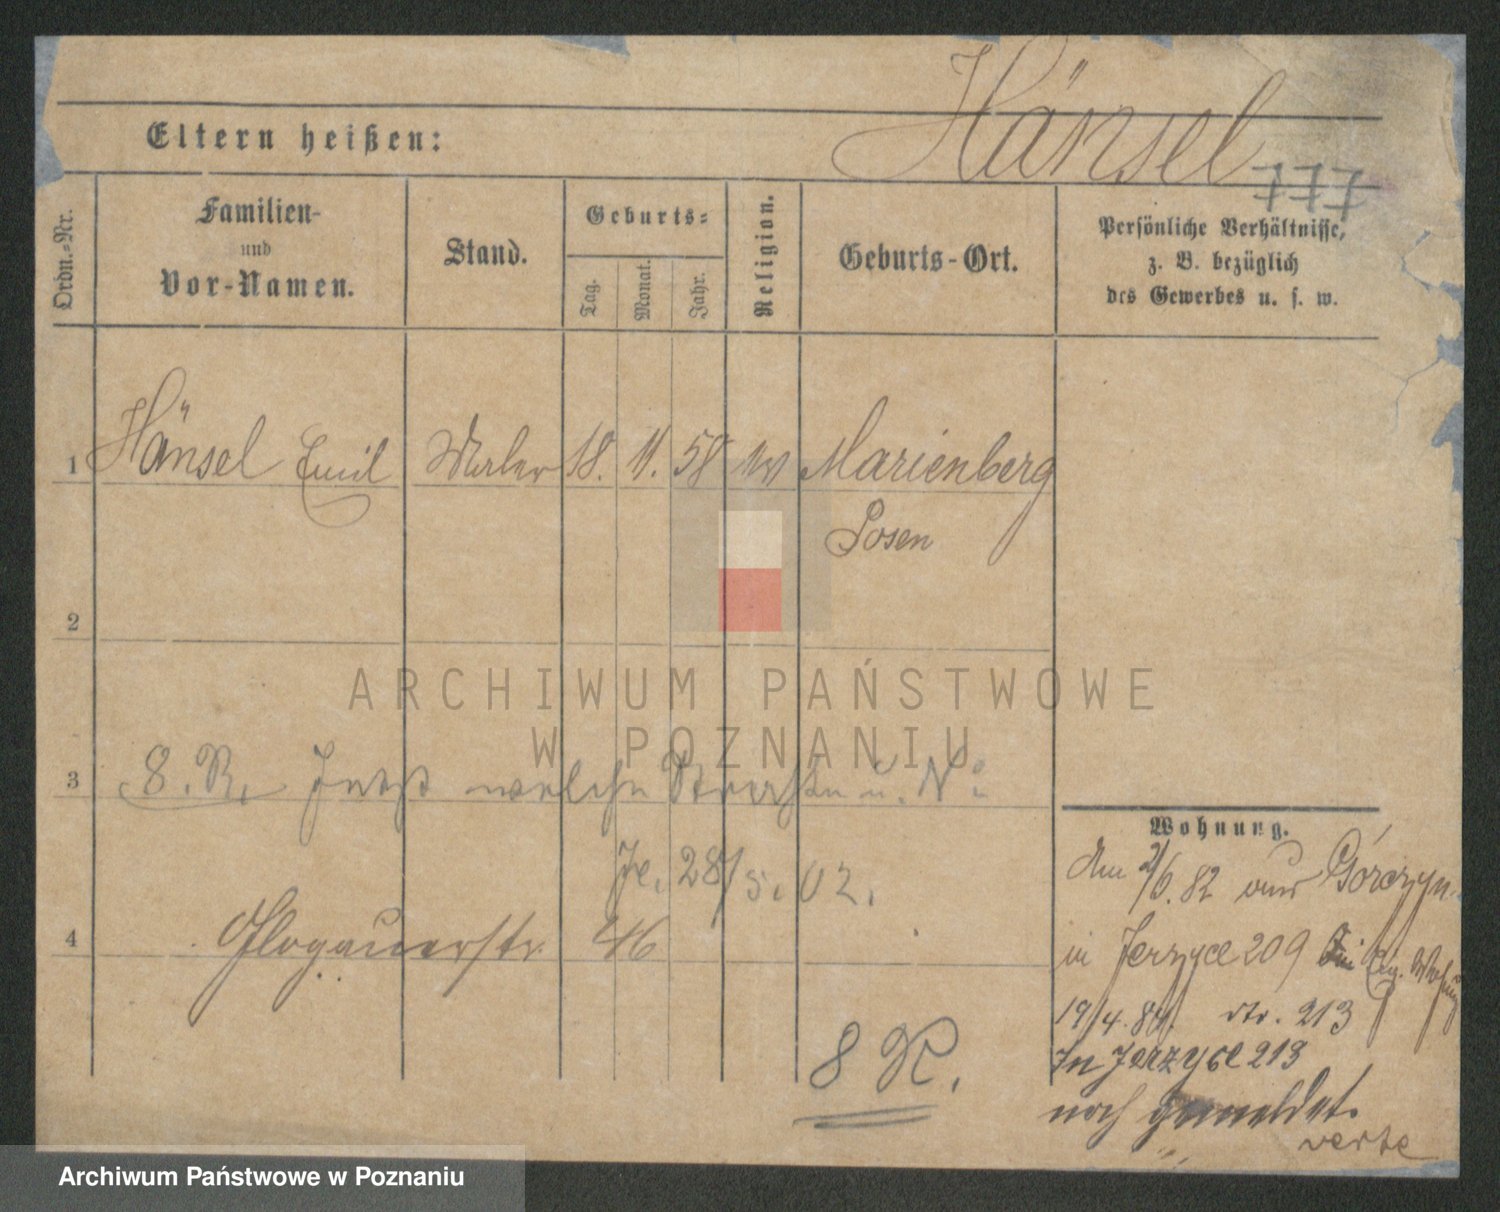 Hänsel
777
Eltern heißen:
Ordn.-Nr.
Familien-
und
Vor-Namen.
Stand.
Geburts-
Tag.
Monat.
Jahr.
Religion.
Geburts-Ort.
Persönliche Verhältnisse,
z. B. bezüglich
des Gewerbes u. s. w.
1 Hänsel Emil Maler 18. 11. 58 Marienberg
Posen
2
ARCHIWUM PAŃSTWOWE
W POZNANIU
3 8. R. Jetzt welche Straße u. N:
Je. 28/5. 02.
4 Glogauerstr. 46
8 R.
Wohnung.
den 2/6. 82 aus Górczyn
in Jerzyce 209
19/4. 84. 213
In Jerzyce 213
noch gemeldet.
verte
Archiwum Państwowe w Poznaniu